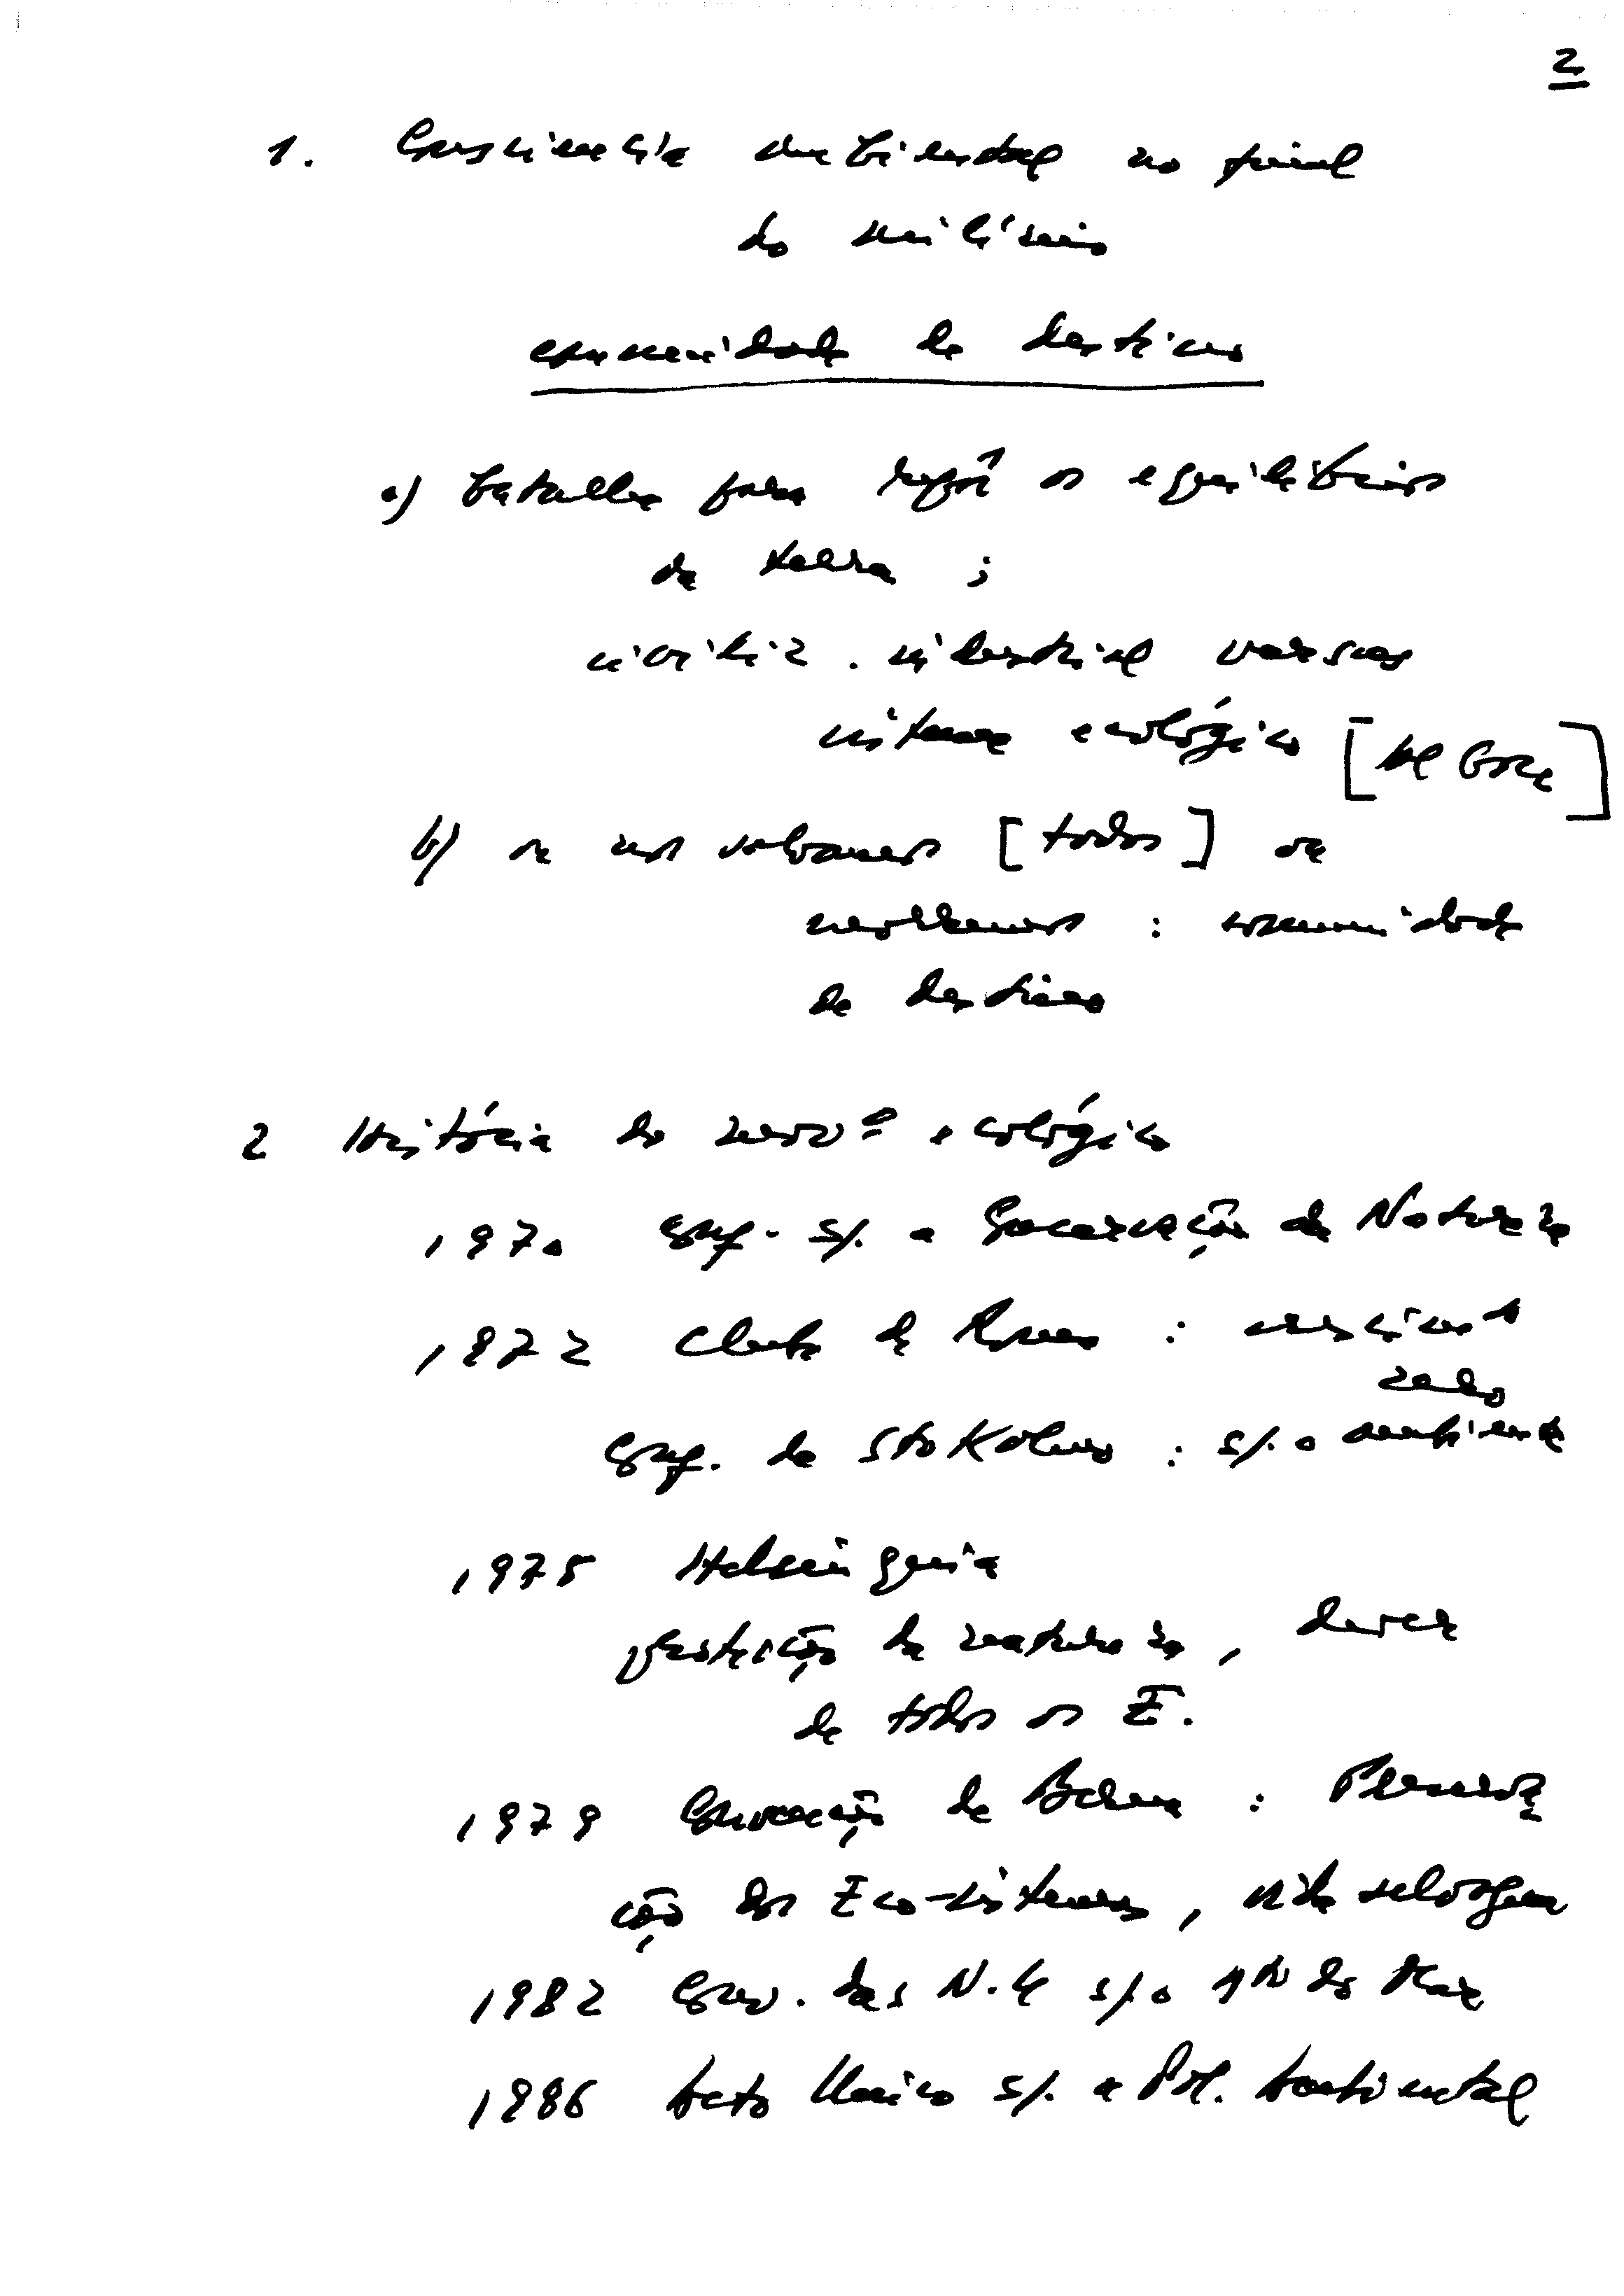 2
1. Consciência ambiental no final
do milénio
comunidade de destino
a) batalha para repôr os equilíbrios
da terra ;
civiliz. industrial versus
sistema ecológico [Al Gore]
b) ou nos salvamos [todos] ou
morremos : comunidade
de destino
2 História do movº ecológico
1970 Conf. s/. a Conservação da Natureza
1972 Clube de Roma : crescimento
zero
Conf. de Stokolmo : s/. o ambiente
1975 Helsínquia
protecção da natureza, dever
de todos os E.
1979 Convenção de Berna : Preserva
ção dos Eco-sistemas, vida selvagem
1982 Conv. das N.U s/. o Dto do Mar
1986 Acto Único s/. a Pol. Ambiental